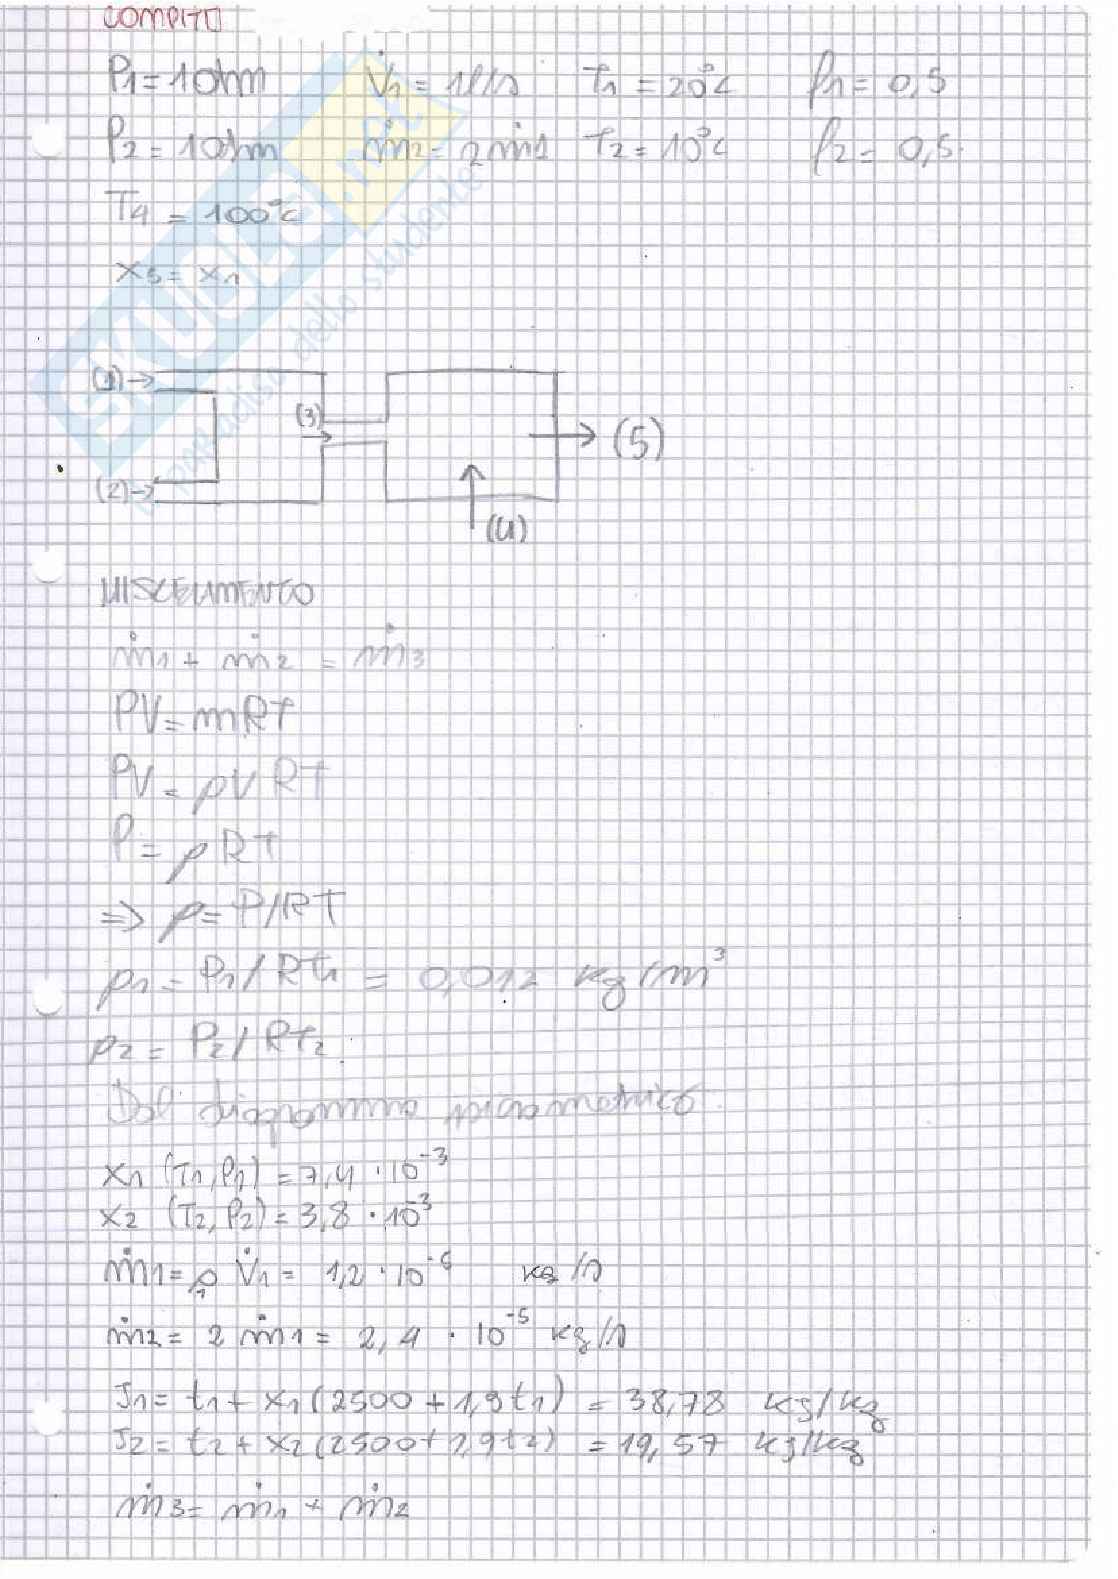 COMPITO
P1 = 1 atm V̇1 = 1 l/s T1 = 20°C φ1 = 0,5
P2 = 1 atm ṁ2 = 2 ṁ1 T2 = 10°C φ2 = 0,5
T4 = 100°C
x5 = x1
(1)→
(3)
(5)
(2)→
(4)
MISCELAMENTO
ṁ1 + ṁ2 = ṁ3
PV = mRT
PV = ρV RT
P = ρRT
=> ρ = P/RT
ρ1 = P1/Rt1 = 0,012 kg/m³
ρ2 = P2/RT2
Dal diagramma psicrometrico
x1 (T1, φ1) = 7,4 · 10⁻³
x2 (T2, φ2) = 3,8 · 10⁻³
ṁ1 = ρ1 V̇1 = 1,2 · 10⁻⁵ kg/s
ṁ2 = 2 ṁ1 = 2,4 · 10⁻⁵ kg/s
J1 = t1 + x1 (2500 + 1,9 t1) = 38,78 kJ/kg
J2 = t2 + x2 (2500 + 1,9 t2) = 19,57 kJ/kg
ṁ3 = ṁ1 + ṁ2
SKUOLA.net
il paradiso dello studente